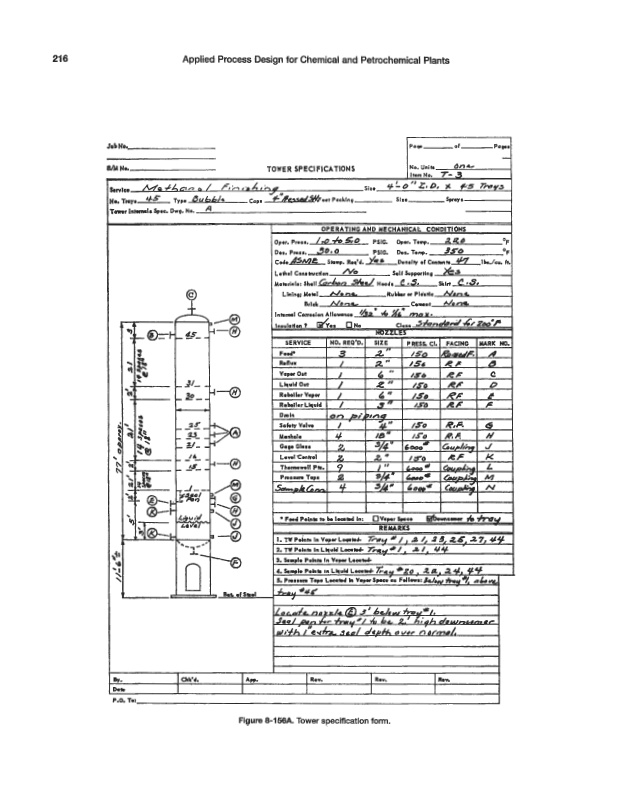 216
Applied Process Design for Chemical and Petrochemical Plants
Job No.
Page of Pages
B/M No.
TOWER SPECIFICATIONS
No. Units One
Item No. T-3
Service Methanol Finishing Size 4'-0" I.D. x 45 Trays
No. Trays 45 Type Bubble Caps 4" Pressed Stl Packing Size Sprays
Tower Internals Spec. Dwg. No. A
OPERATING AND MECHANICAL CONDITIONS
Oper. Press. 1.0 to 5.0 PSIG. Oper. Temp. 220 °F
Des. Press. 30.0 PSIG. Des. Temp. 350 °F
Code ASME Stamp. Req'd. Yes Density of Contents 47 lbs./cu. ft.
Lethal Construction No Self Supporting Yes
Materials: Shell Carbon Steel Heads C.S. Skirt C.S.
Lining: Metal None Rubber or Plastic None
Brick None Cement None
Internal Corrosion Allowance 1/32" to 1/16" max.
Insulation? Yes No Class Standard for 200°F
NOZZLES
SERVICE NO. REQ'D. SIZE PRESS. CL. FACING MARK NO.
Feed* 3 2" 150 Raised F. A
Reflux 1 2" 150 RF B
Vapor Out 1 6" 150 RF C
Liquid Out 1 2" 150 RF D
Reboiler Vapor 1 6" 150 RF E
Reboiler Liquid 1 3" 150 RF F
Drain on piping
Safety Valve 1 4" 150 R.F. G
Manhole 4 18" 150 R.F. H
Gage Glass 2 3/4" 6000# Coupling J
Level Control 2 2" 150 RF K
Thermowell Pts. 9 1" 6000# Coupling L
Pressure Taps 2 3/4" 6000# Coupling M
Sample Conn 4 3/4" 6000# Coupling N
* Feed Points to be located in: Vapor Space Downcomer to tray
REMARKS
1. TW Points in Vapor Located: Tray #1, 21, 23, 25, 27, 44
2. TW Points in Liquid Located: Tray #1, 21, 44
3. Sample Points in Vapor Located:
4. Sample Points in Liquid Located: Tray #20, 22, 24, 44
5. Pressure Taps Located in Vapor Space as Follows: Below tray #1, above
tray #45
Locate nozzle E 3' below tray #1.
Seal pan for tray #1 to be 2" high downcomer
with 1" extra seal depth over normal.
C
M
B
45
H
31
30
H
25
23
21
A
16
15
H
1
M
Seal Pan
E
G
K
H
Liquid Level
J
K
J
F
77' approx.
11'-6"
5'
Bot. of Steel
By. Chk'd. App. Rev. Rev. Rev.
Date
P.O. To:
Figure 8-156A. Tower specification form.